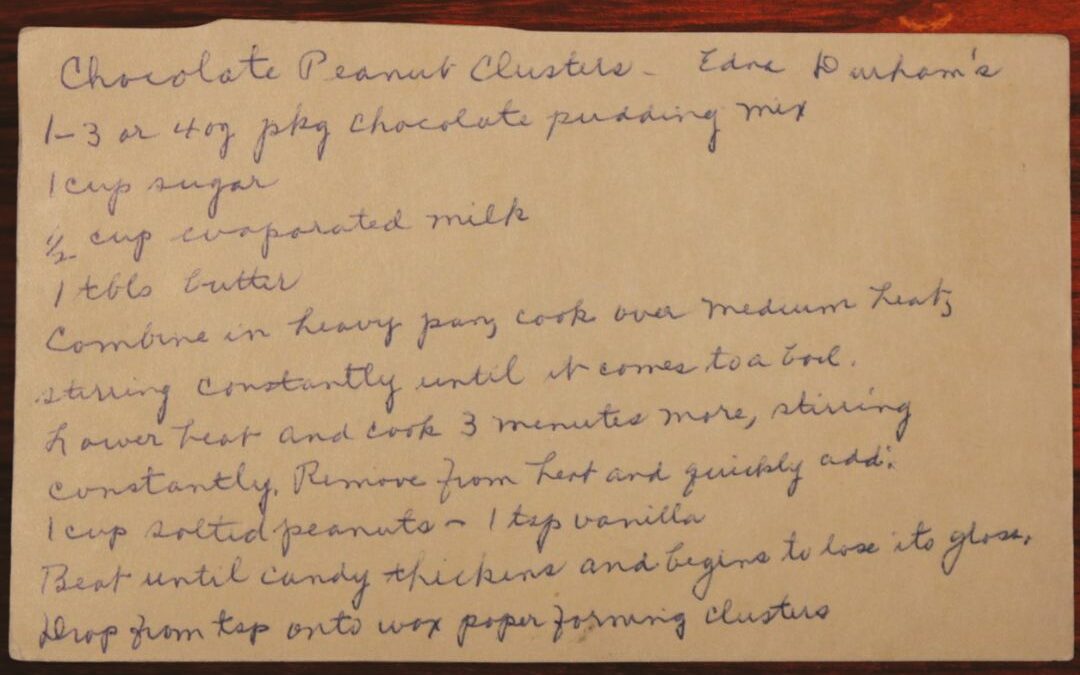 Chocolate Peanut Clusters - Edna Durham's
1-3 or 4 oz pkg chocolate pudding mix
1 cup sugar
1/2 cup evaporated milk
1 tbls butter
Combine in heavy pan, cook over medium heat,
stirring constantly until it comes to a boil.
Lower heat and cook 3 minutes more, stirring
constantly. Remove from heat and quickly add:
1 cup salted peanuts - 1 tsp vanilla
Beat until candy thickens and begins to lose its gloss.
Drop from tsp onto wax paper forming clusters